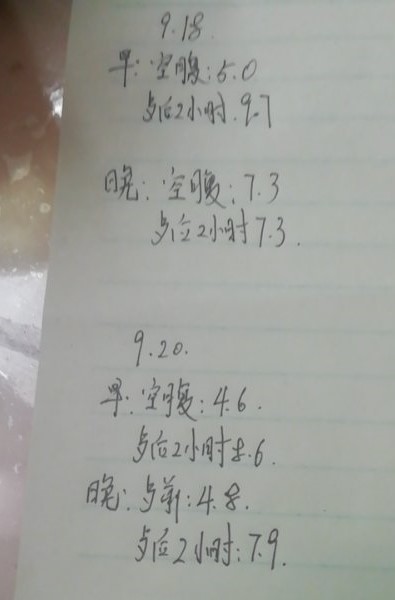 9.18.
早:空腹:5.0
歺后2小时.9.7
晚:空腹:7.3
歺后2小时7.3.
9.20.
早:空腹:4.6.
歺后2小时8.6.
晚:歺前:4.8.
歺后2小时:7.9.